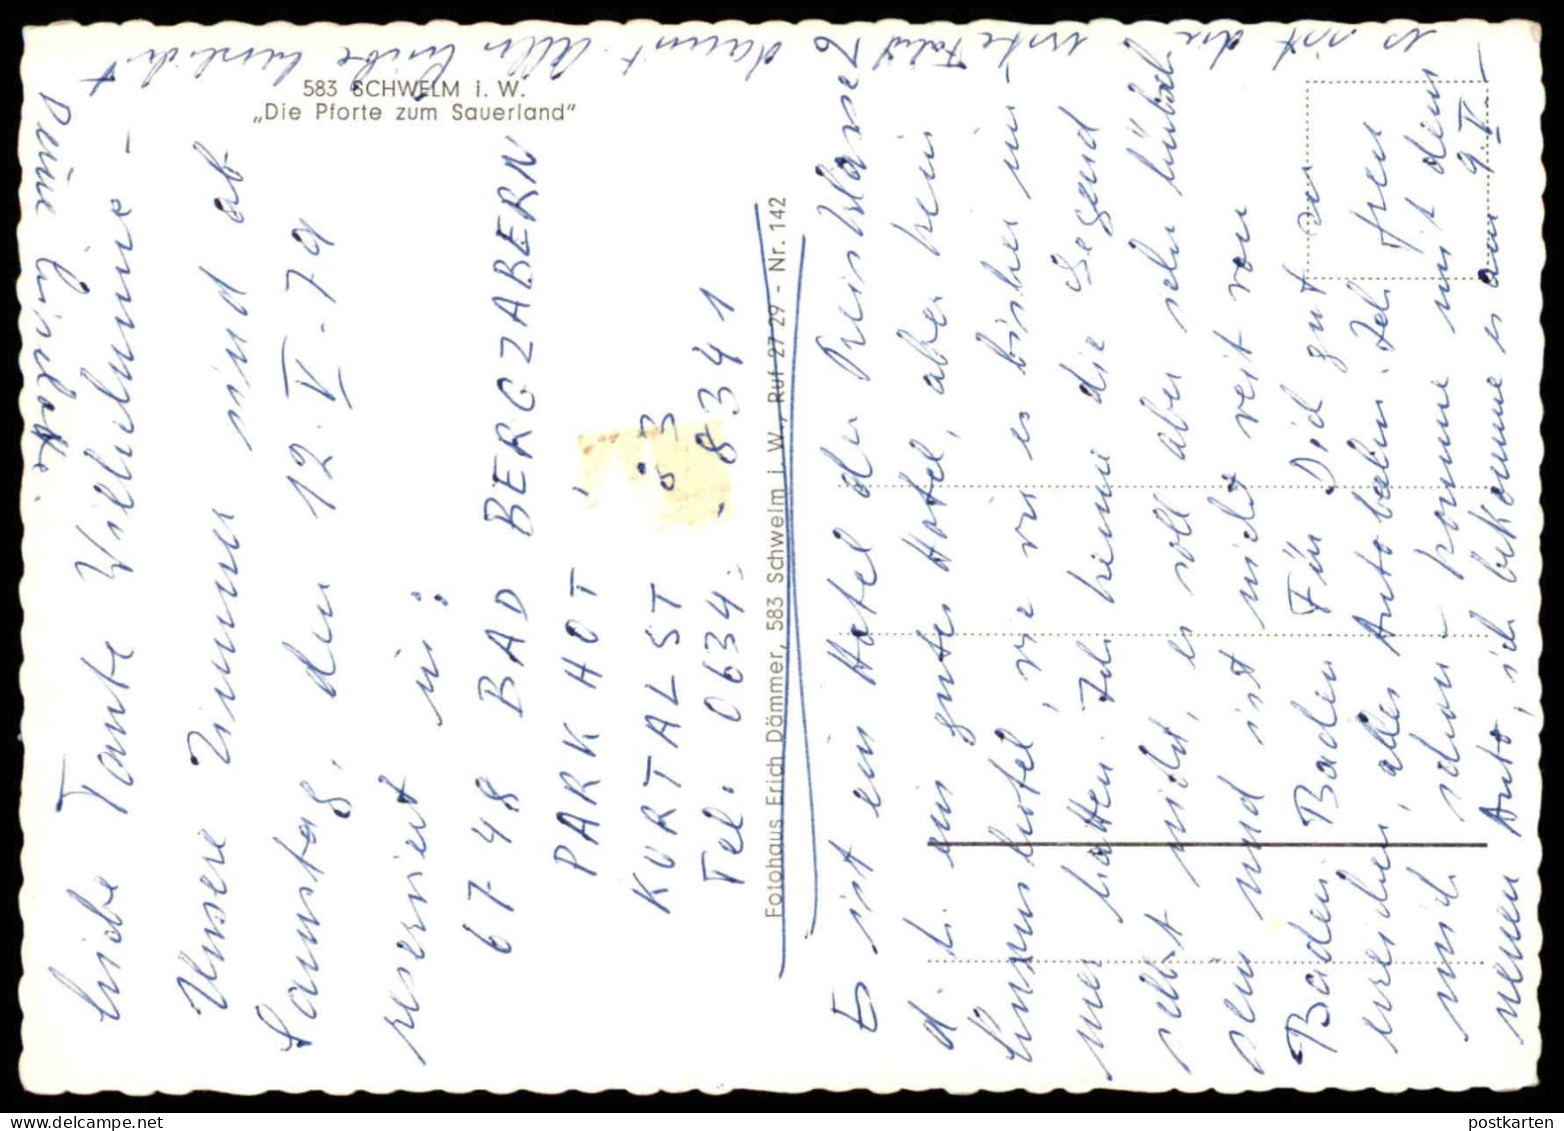 583 SCHWELM i. W.
„Die Pforte zum Sauerland"
Liebe Tante Wilhelmine -
Unsere Zimmer sind ab
Samstag, den 12. V. 79
reserviert in:
6748 BAD BERGZABERN
PARKHOT
KURTALST 3
Tel. 0634 - 8341
Fotohaus Erich Dämmer, 583 Schwelm i. W., Ruf 27 29 - Nr. 142
Es ist ein Hotel der Preisklasse 2
d. h. ein gutes Hotel, aber kein
Luxushotel, wie wir es bisher im-
mer hatten. Ich kenne die Gegend
selbst nicht, es soll aber sehr hübsch
sein und ist nicht weit von
Baden Baden. Für Dich gut zu
erreichen, alles Autobahn. Ich freu
mich schon - komme mit dem
neuen Auto, ich bekomme es am 9. V. -
es ist die erste Fahrt
damit. Alles Liebe
Deine Liselotte.
postkarten